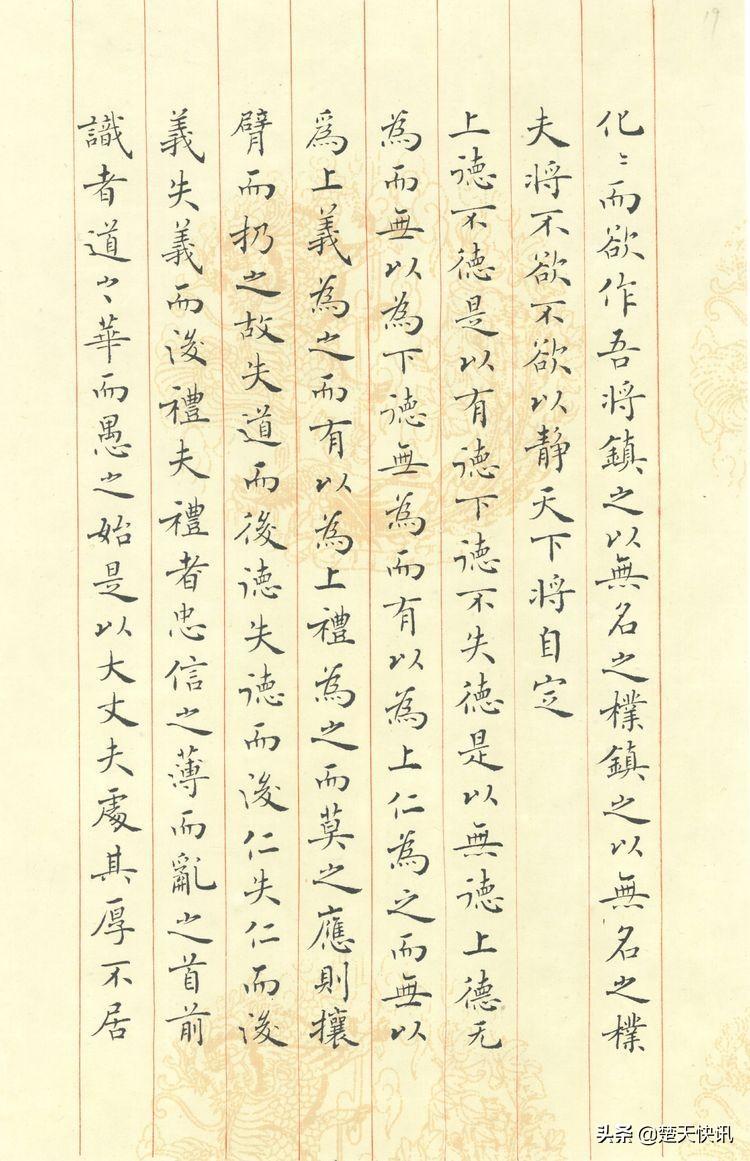 19
化〻而欲作吾将鎮之以無名之樸鎮之以無名之樸
夫将不欲不欲以靜天下将自定
上德不德是以有德下德不失德是以無德上德无
為而無以為下德無為而有以為上仁為之而無以
為上義為之而有以為上禮為之而莫之應則攘
臂而扔之故失道而後德失德而後仁失仁而後
義失義而後禮夫禮者忠信之薄而亂之首前
識者道之華而愚之始是以大丈夫處其厚不居
头条 @楚天快讯